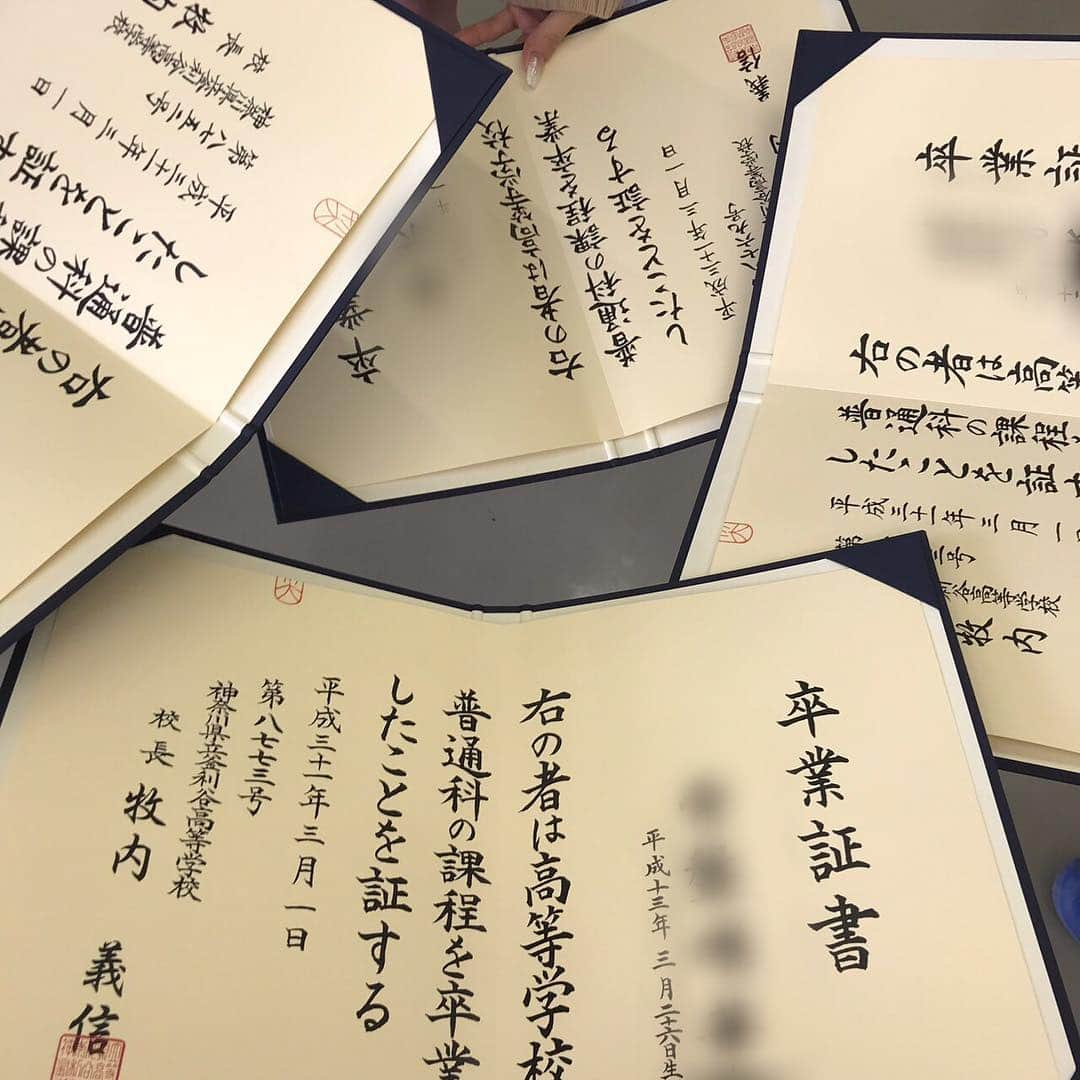 卒業証書
平成十三年三月二六日生
右の者は高等学校
普通科の課程を卒業
したことを証する
平成三十一年三月一日
第八七七三号
神奈川県立釜利谷高等学校
校長 牧内 義信
卒業証
右の者は高等
普通科の課程
したことを証す
平成三十一年三月一日
第
三号
利谷高等学校
牧内
卒業
右の者は高等学校
普通科の課程を卒業
したことを証する
平成三十一年三月一日
八七六九号
高等学校
義信
右の者
普通科の課
したことを証す
平成三十一年三月一日
第八七五三号
神奈川県立釜利谷高等学校
校長 牧